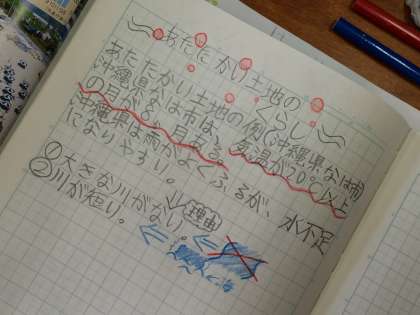 あたたかい土地のくらし
あたたかい土地の例;沖縄県なは市
沖縄県なは市は、気温が20℃以上
の月が
沖縄県は雨がよくふるが、水不足
になりやすい。
理由
①大きな川がない
②川が短い。